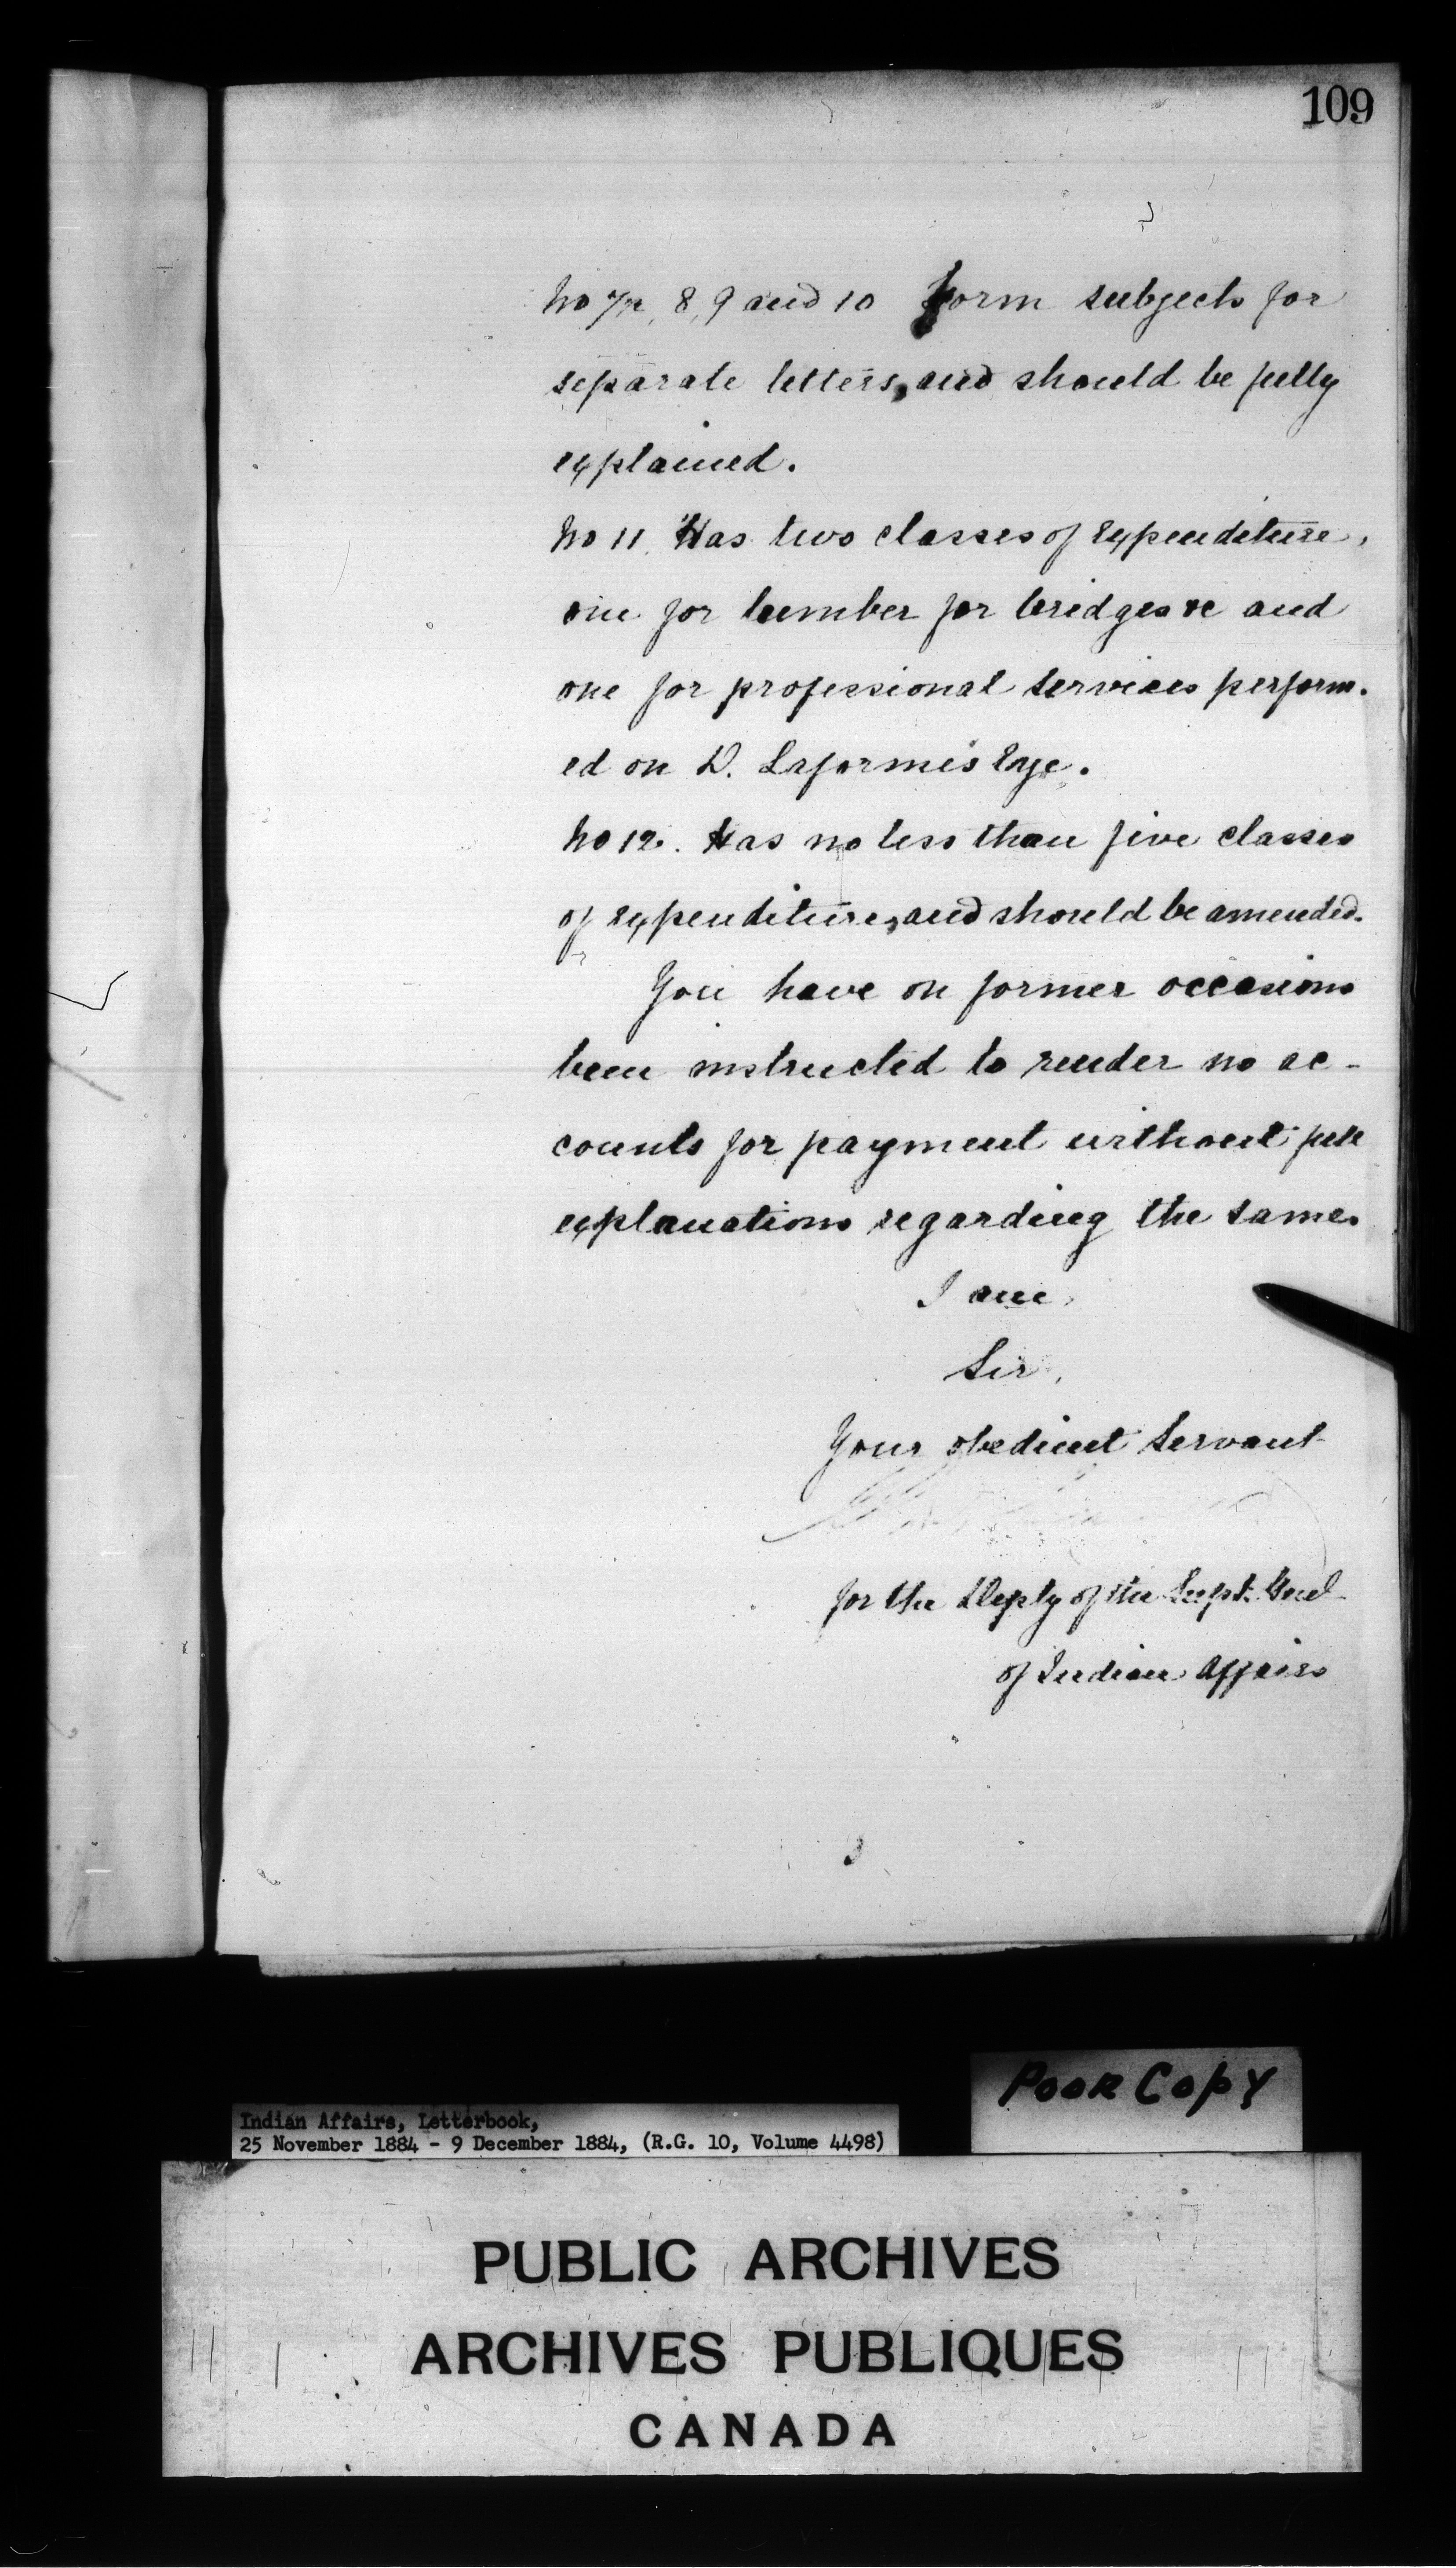 109
No 7½, 8, 9 and 10 form subjects for
separate letters, and should be fully
explained.
No 11. Has two classes of expenditure,
one for lumber for bridges &c and
one for professional services perform-
ed on D. Laforme's Eye.
No 12. Has no less than five classes
of expenditure, and should be amended.
You have on former occasions
been instructed to render no ac-
counts for payment without full
explanations regarding the same.
I am,
Sir,
Your obedient servant
for the Depty of the Supt. Genl
of Indian Affairs
Poor Copy
Indian Affairs, Letterbook,
25 November 1884 - 9 December 1884, (R.G. 10, Volume 4498)
PUBLIC ARCHIVES
ARCHIVES PUBLIQUES
CANADA